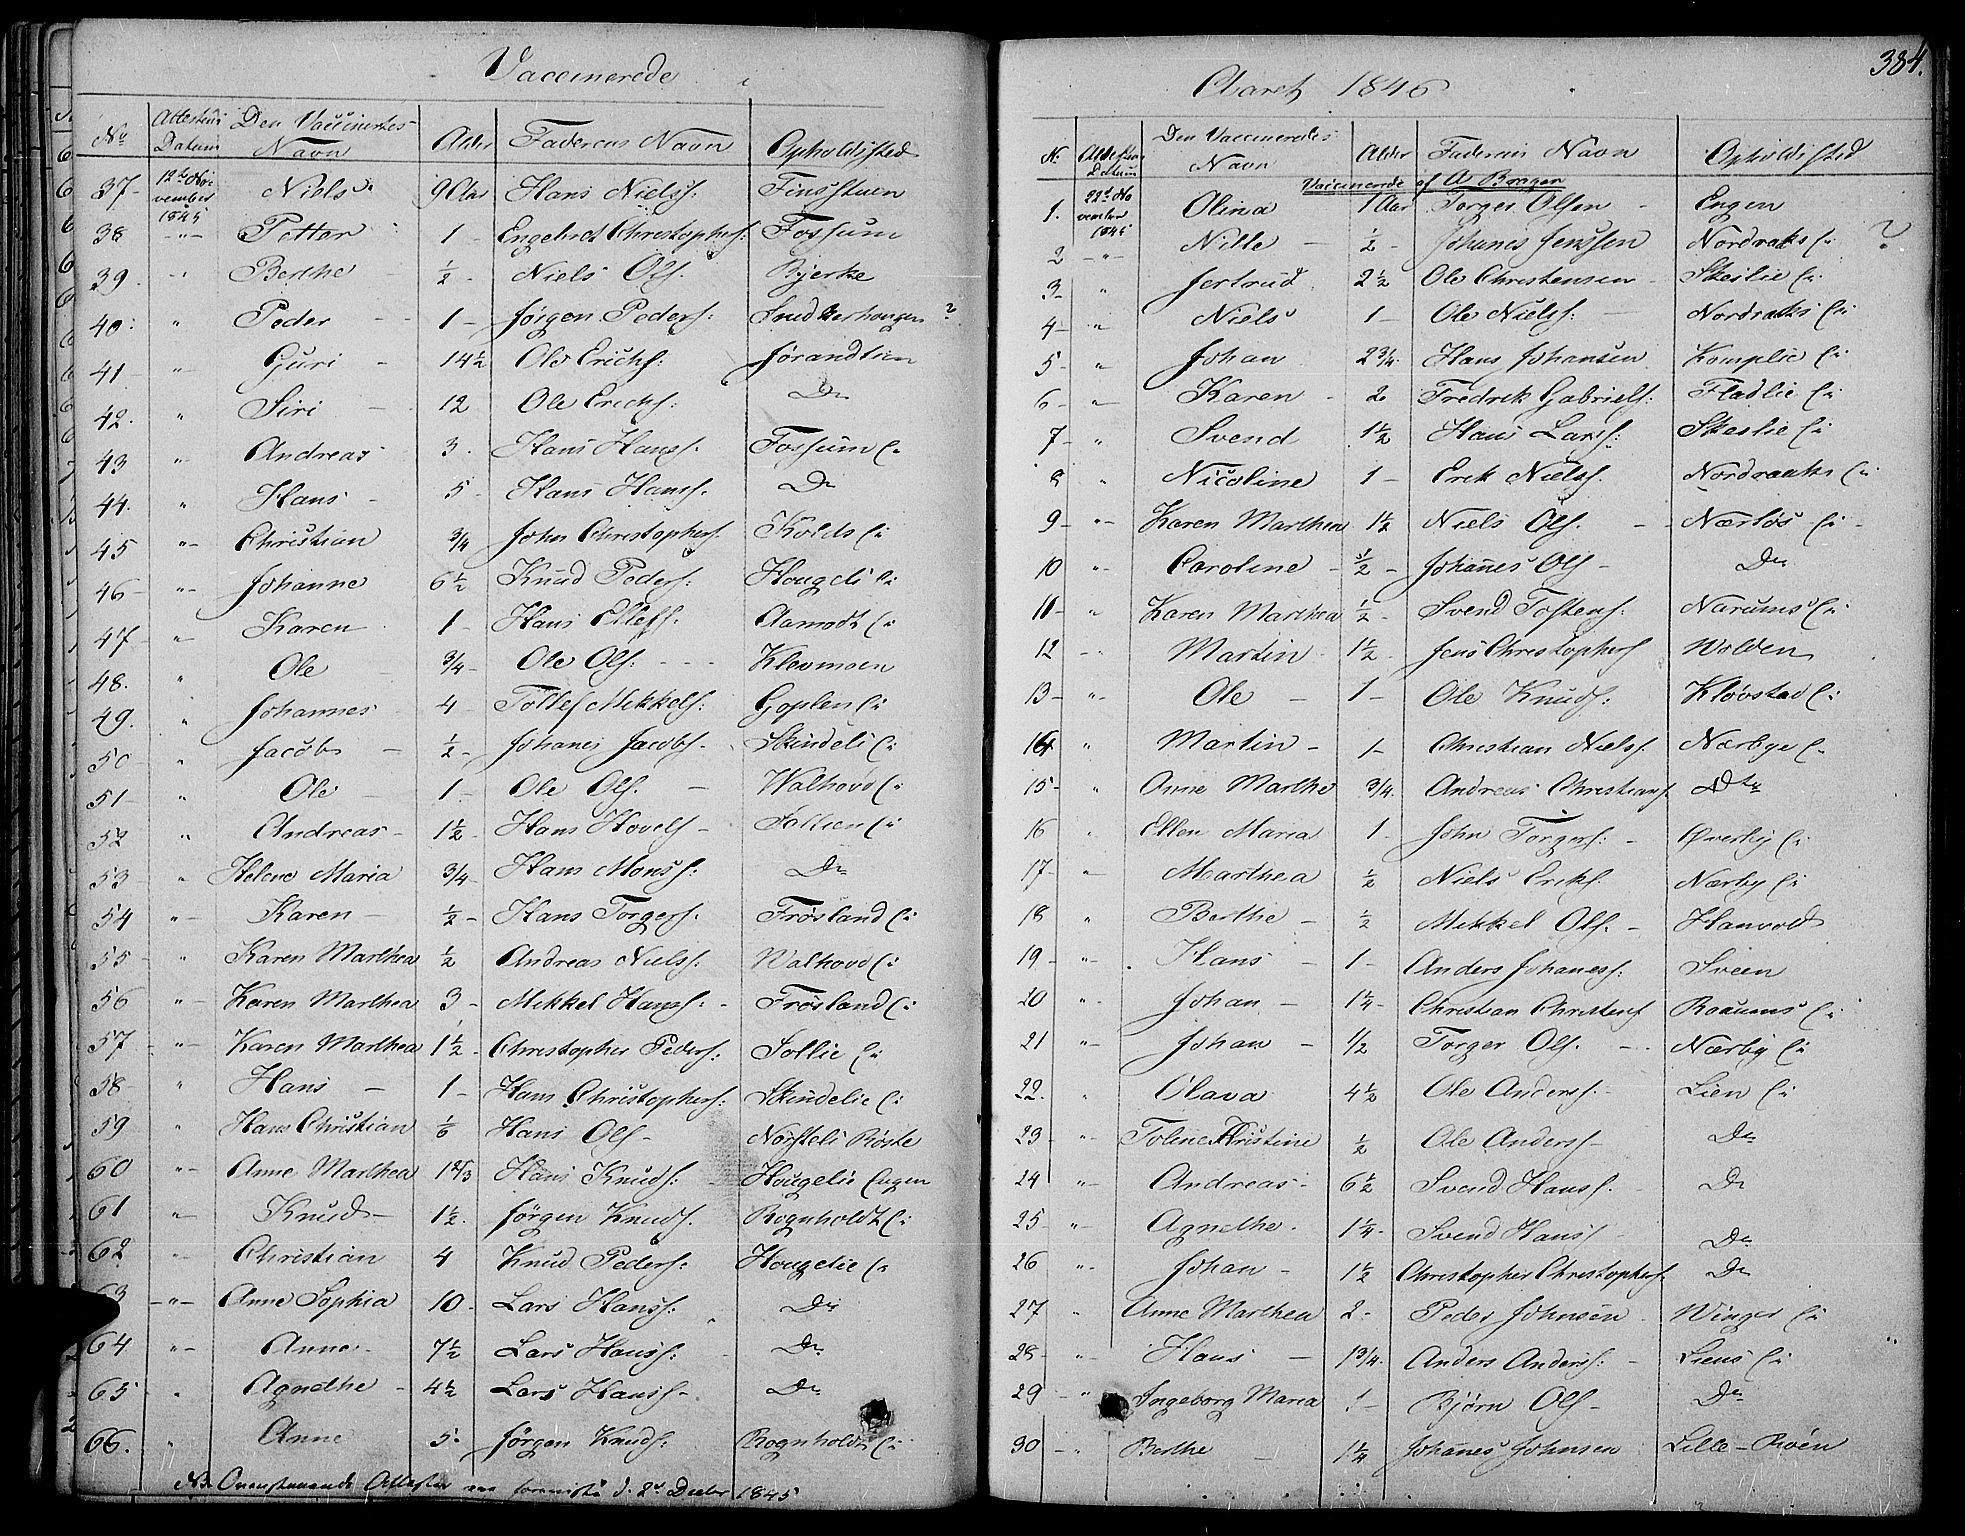 Vaccinerede
No Attestens Datum Den Vaccineredes Navn Alder Faderens Navn Opholdssted
37- 12te November 1845 Niels 9 Aar Hans Nielss: Finsstuen
38 -"- Petter 1 - Engebret Christophers: Fossum
39 " Berthe ½ - Niels Ols: Bjerke
40: " Peder - 1 - Jørgen Peders: ?
41 - " Guri - 14½ Ole Erichs: Jørandlien
42. " Siri - 12 Ole Erichs: Do
43 " Andreas 3. Hans Hanss. Fossum E:
44. " Hans - 5 - Hans Hanss. Do
45 " Christian ¾ John Christophers. Kolds E:
46 - " Johanne 6½ Knud Peders: Hougeli E:
47 - " Karen 1 - Hans Ellefs. Aamodt E:
48. " Ole ¾ - Ole Ols: - - Klevmoen
49. " Johannes 4 - Tollef Mikkels: Goplen E:
50 " Jacob - ½ - Johanes Jacobs. Skindeli E:
51 - " Ole - 1 - Ole Ols. - Walhovd E:
52 " Andreas - 1½ - Hans Hovels - Sollien E:
53 - " Helene Maria ¾ - Hans Monss: Do
54 " Karen - ½ - Hans Torgers. Frøsland E:
55 - " Karen Marthea ½ Andreas Nielss: Walhovd E:
56 " Karen Marthea 3 - Mikkel Hanss: - Frøsland E:
57 - " Karen Marthea 1½ - Christopher Peders: Sollie E:
58 - " Hans - 1 - Hans Christophers: Skindelie E:
59 " Hans Christian ⅙ Hans Ols - Nørsteli Røste
60 " Anne Marthea 1⅔ Hans Knuds: Hougelie Engen
61 " Knud - 1½. Jørgen Knuds. Rognholdt E:
62 " Christian 4 Knud Peders: Hougelie E:
63 -"- Anne Sophia 10 - Lars Hanss: Do
64 " Anne - 7½ Lars Hanss: Do
65 " Agnethe - 4½ Lars Hanss - Do
66. " Anne 5. Jørgen Knuds: Rognholdt E:
NB Ovenstaaende Attester ere foreviste d. 2d Decbr 1845
384.
Aaret 1846
No Attestens Datum Den Vaccineredes Navn Alder Faderens Navn Opholdssted
Vaccinerede af A Bragen
1. 22de November 1845 Olina 1 Aar Torger Olsen - Engen
2 -"- Nille - ½ - Johanes Jenssen Nordraaks E: ?
3 - " Jertrud 2½ Ole Christensen - Skeslie E:
4 - " Niels 1 - Ole Nielss: - Nordraaks E:
5 - " Johan 2¾. Hans Johansen Komplie E:
6 - " Karen - 2. Fredrek Gabriels: Fladlie E:
7 - " Svend 1½ Hans Larss: Skeslie E:
8 " Nicoline 1 - Erik Nielss. Nordraaks E:
9 - " Karen Marthea 1½ Niels Ols. - Nærløs E: -
10 " Caroline - ½ - Johannes Ols - Do
11 - " Karen Marthea ½ - Svend Tostens: Narums E:
12 - " Martin - 1½ - Jens Christophers Wolden
13 - " Ole - 1 - Ole Knuds: Kløvstad E:
14 " Martin - 1 - Christian Nielss. Nærbye E:
15 - " Anne Marthe ¾. Andreas Christians. Dto
16 " Ellen Maria 1 - John Torgers: - Øverby E:
17 - " Marthea ½ Niels Eriks. Nærby E:
18 " Berthe - ½ Mikkel Ols. - Hanvold
19 - " Hans - 1 - Anders Johaness: Sveen
20 " Johan - 1¼ - Christian Christens Roaums E:
21 " Johan - ½ Torger Ols. - Nærby E:
22. " Olava 4½ Ole Anderss. - Lien E:
23 - " Toline Kristine ½ Ole Anderss - Do
24 " Andreas - 6½ Svend Hanss. Do
25 - " Agnethe. 1¼ - Svend Hanss Do
26 " Johan - 1½ Christopher Christophers. Do
27 " Anne Marthea 2 - Peder Johnsen. Winger E:
28 - " Hans - 1¾. Anders Anderss: - Liens E:
29 - " Ingeborg Maria 1 - Bjørn Ols - Do
30 - " Berthe - 1¼ Johanes Johnsen Lille-Roen